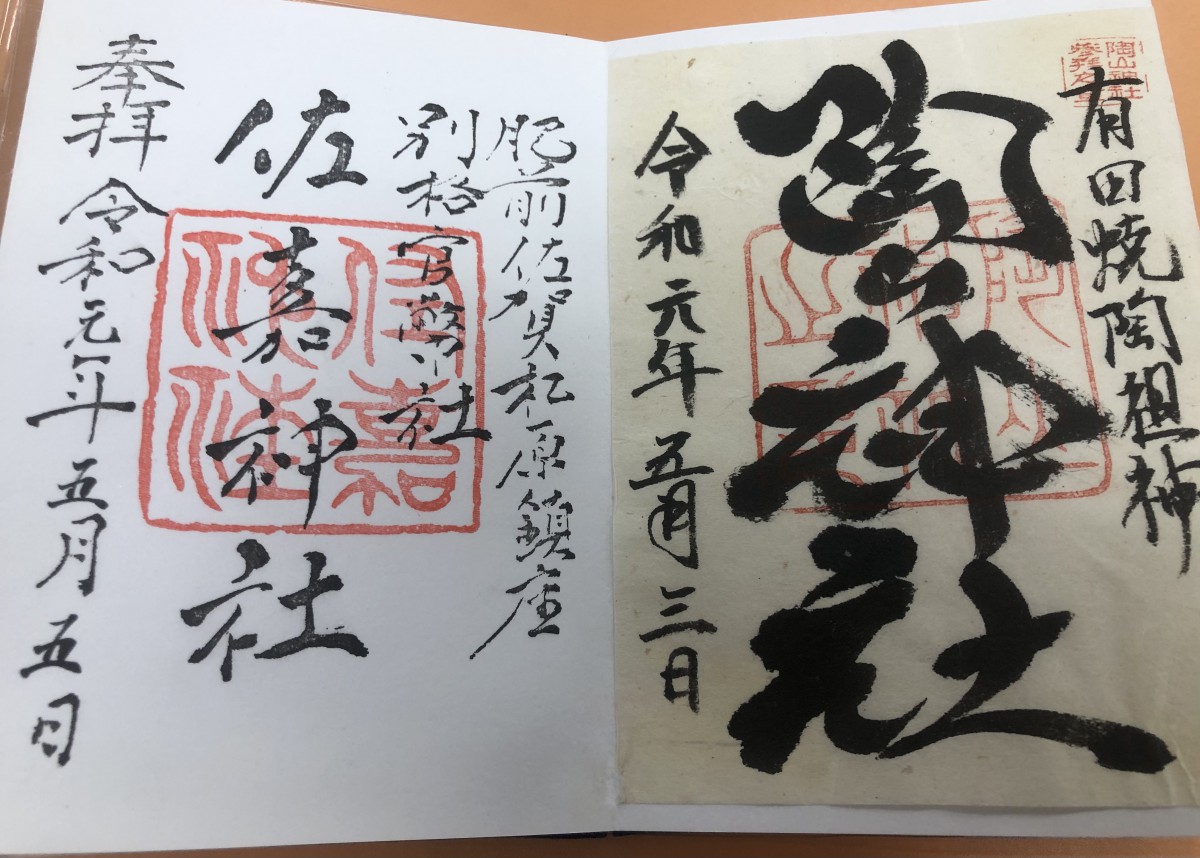 陶山神社
有田焼陶祖神
陶山神社
令和元年五月三日
肥前佐賀松原鎮座
別格官幣社
佐嘉神社
奉拝 令和元年五月五日